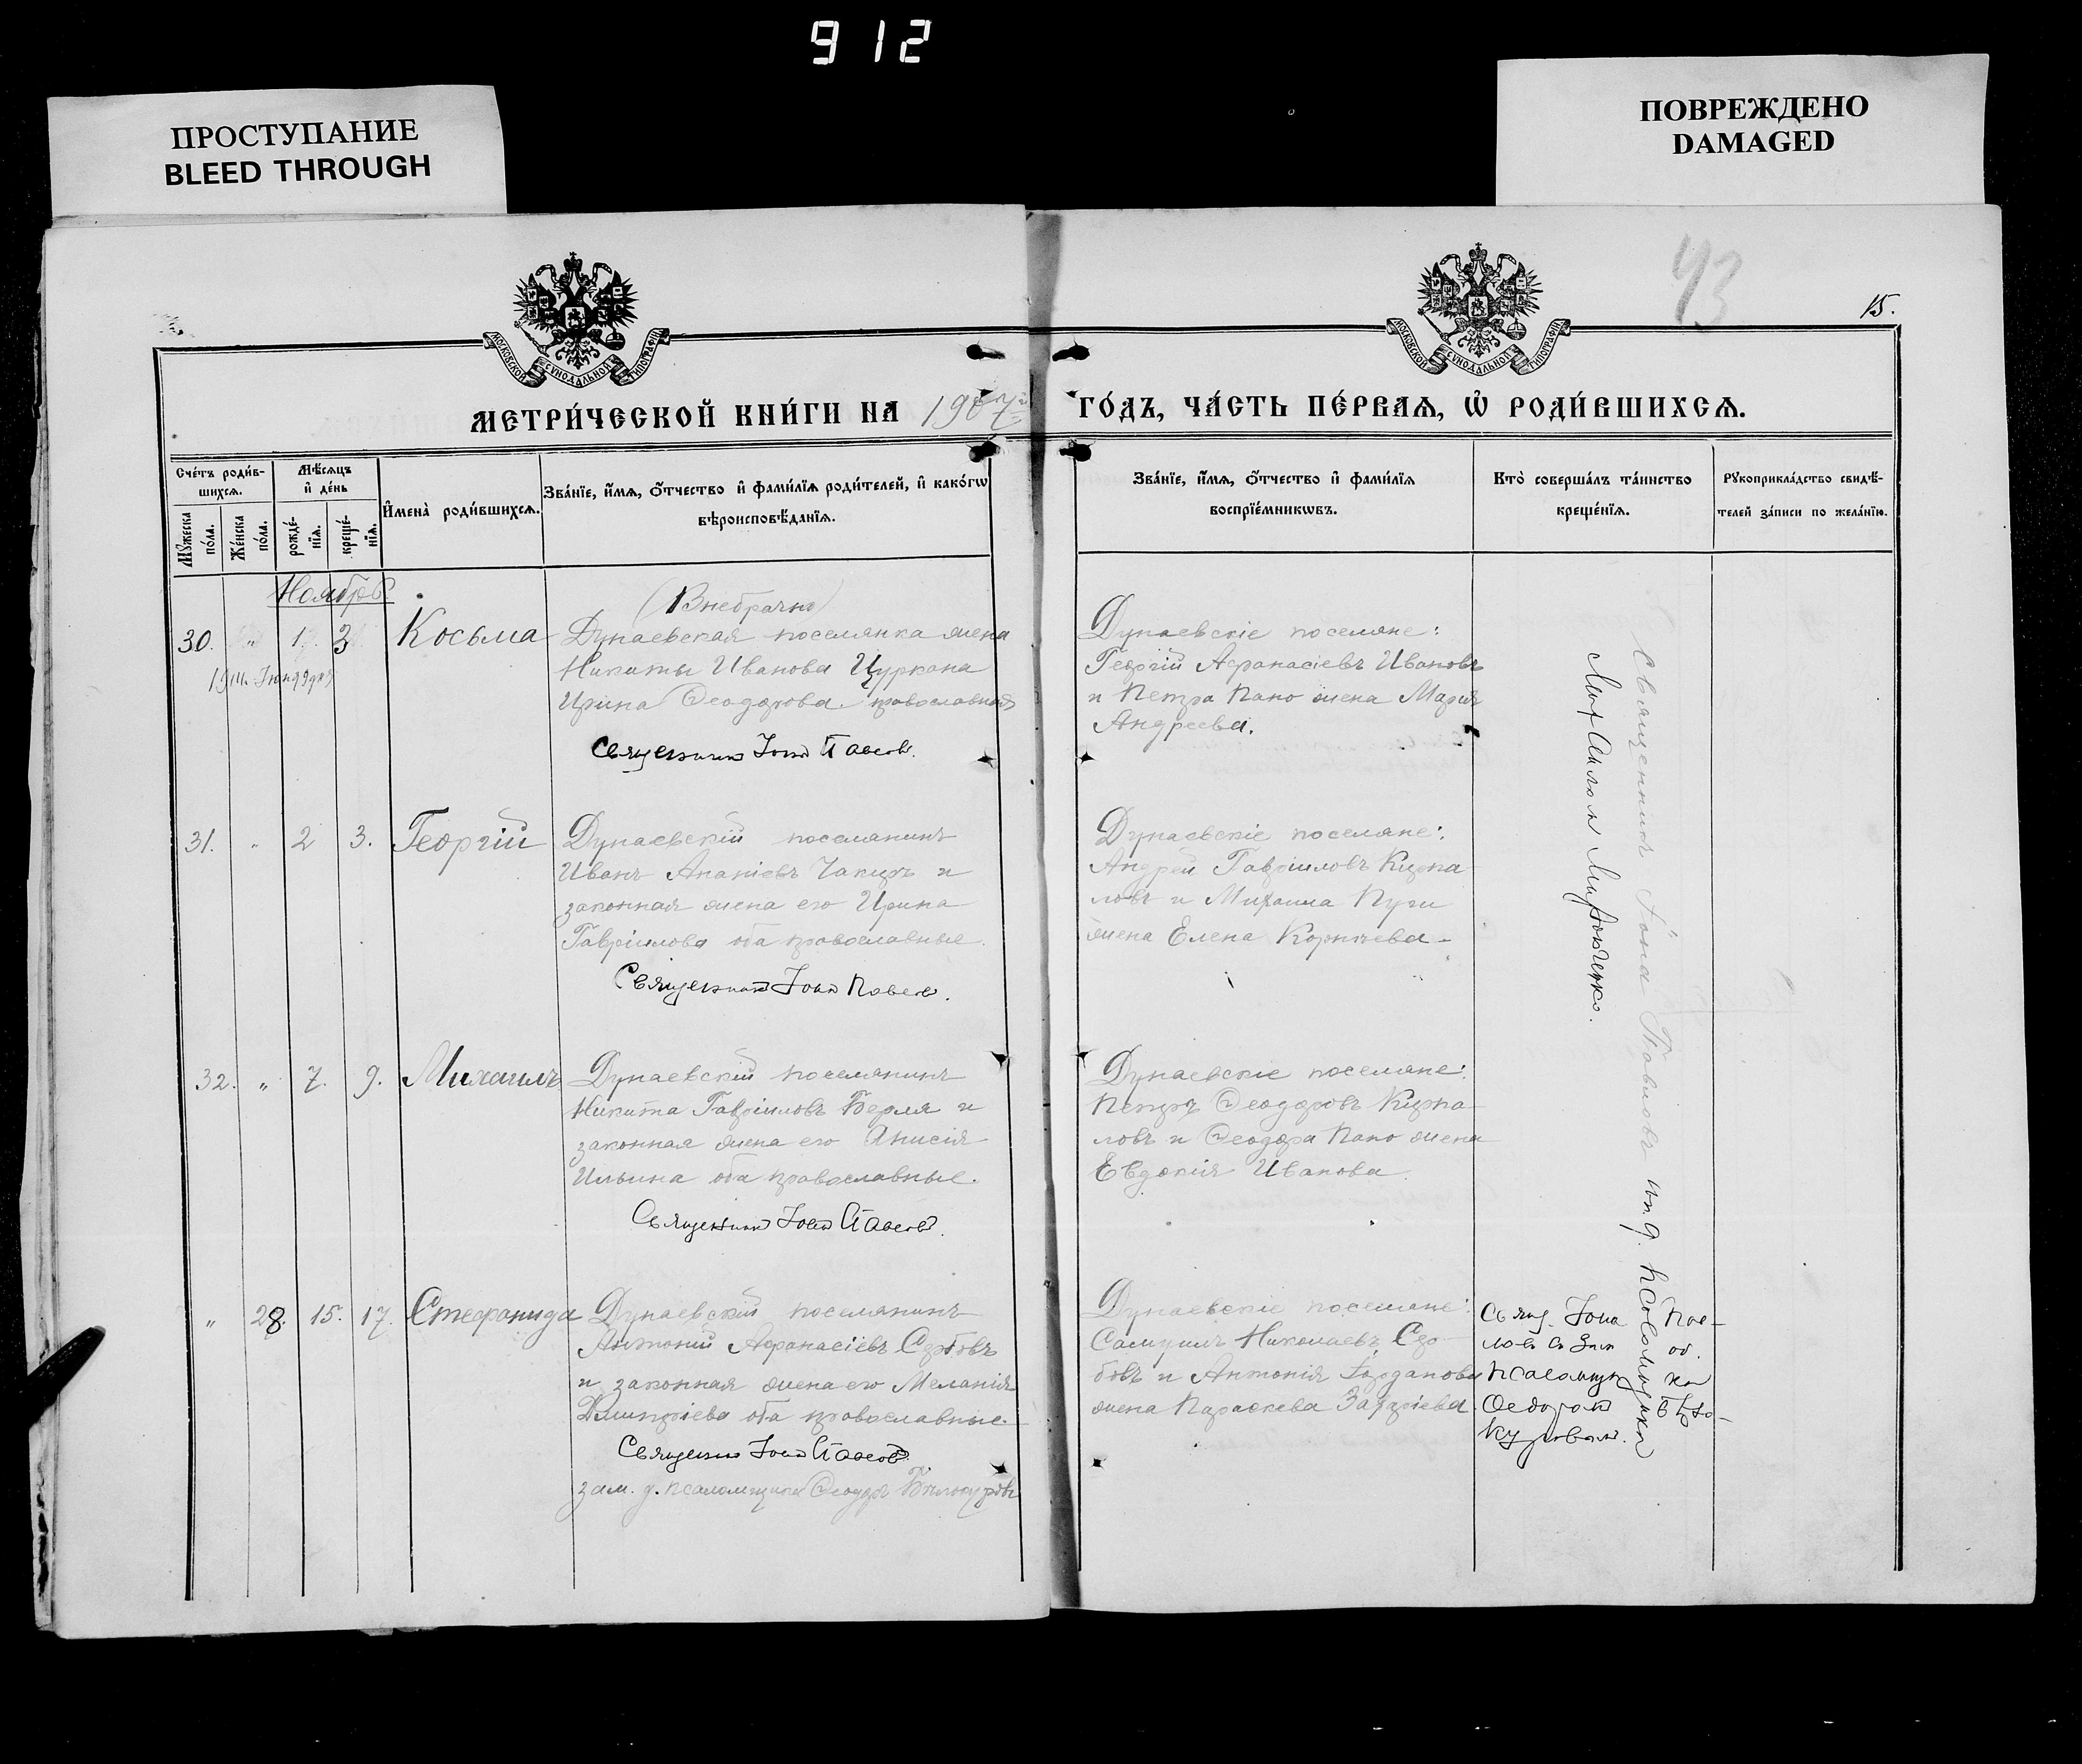 912
ПРОСТУПАНИЕ
BLEED THROUGH
ПОВРЕЖДЕНО
DAMAGED
43
15.
МОСКОВСКОЙ СУНОДАЛЬНОЙ ТИПОГРАФІИ
МОСКОВСКОЙ СУНОДАЛЬНОЙ ТИПОГРАФІИ
МЕТРИ́ЧЕСКОЙ КНИ́ГИ НА 1907 й ГО́ДЪ, ЧА́СТЬ ПЕ́РВАѦ, Ѡ҆ РОДИ́ВШИХСѦ.
Сче́тъ роди́в-
шихсѧ.
Мꙋ́жеска по́ла.
Же́нска по́ла.
Мѣ́сѧцъ
и҆ де́нь
рожде́-
нїѧ.
креще́-
нїѧ.
И҆мена̀ роди́вшихсѧ.
Зва́нїе, и҆́мѧ, ѻ҆́тчество и҆ фами́лїѧ роди́телей, и҆ како́гѡ
вѣроисповѣ́данїѧ.
Зва́нїе, и҆́мѧ, ѻ҆́тчество и҆ фами́лїѧ
воспрїе́мникѡвъ.
Кто̀ соверша́лъ та́инство
креще́нїѧ.
Рꙋкоприкла́дство свидѣ́-
телей за́писи по жела́нїю.
Ноябрь
30. " 1. 3 Косьма
(Внебрачно)
Дунаевская поселянка жена
Никиты Иванова Цуркана
Ирина Ѳеодорова православная
Священникъ Іона Павловъ.
Дунаевскіе поселяне:
Георгій Афанасіевъ Ивановъ
и Петра Пано жена Марія
Андреева.
31. " 2 3. Георгій
Дунаевскій поселянинъ
Иванъ Ананіевъ и
законная жена его Ирина
Гавріилова оба православные.
Священникъ Іона Павловъ.
Дунаевскіе поселяне:
Андрей Гавріиловъ Кирна
ловъ и Михаила
жена Елена Корнѣева
32. " 7. 9. Михаилъ
Дунаевскій поселянинъ
Никита Гавріиловъ Берля и
законная жена его Анисія
Ильина оба православные.
Священникъ Іона Павловъ.
Дунаевскіе поселяне:
Петръ Ѳеодоровъ Кирна
ловъ и Ѳеодора Пано жена
Евдокія Иванова.
" 28. 15. 17. Стефанида
Дунаевскій поселянинъ
Антоній Афанасіевъ Сербовъ
и законная жена его Меланія
Дмитріева оба православные.
Священникъ Іона Павловъ.
зам. д. псаломщика Ѳеодоръ Бѣлокуровъ
Дунаевскіе поселяне:
Самуилъ Николаевъ Сер-
бовъ и Антонія Іорданова
жена Параскева Захаріева.
Священникъ Іона Павловъ и. д. псаломщика
Свящ. Іона Пав-
ловъ съ зам. об.
псаломщика
Ѳедоромъ Бѣло-
куровымъ.